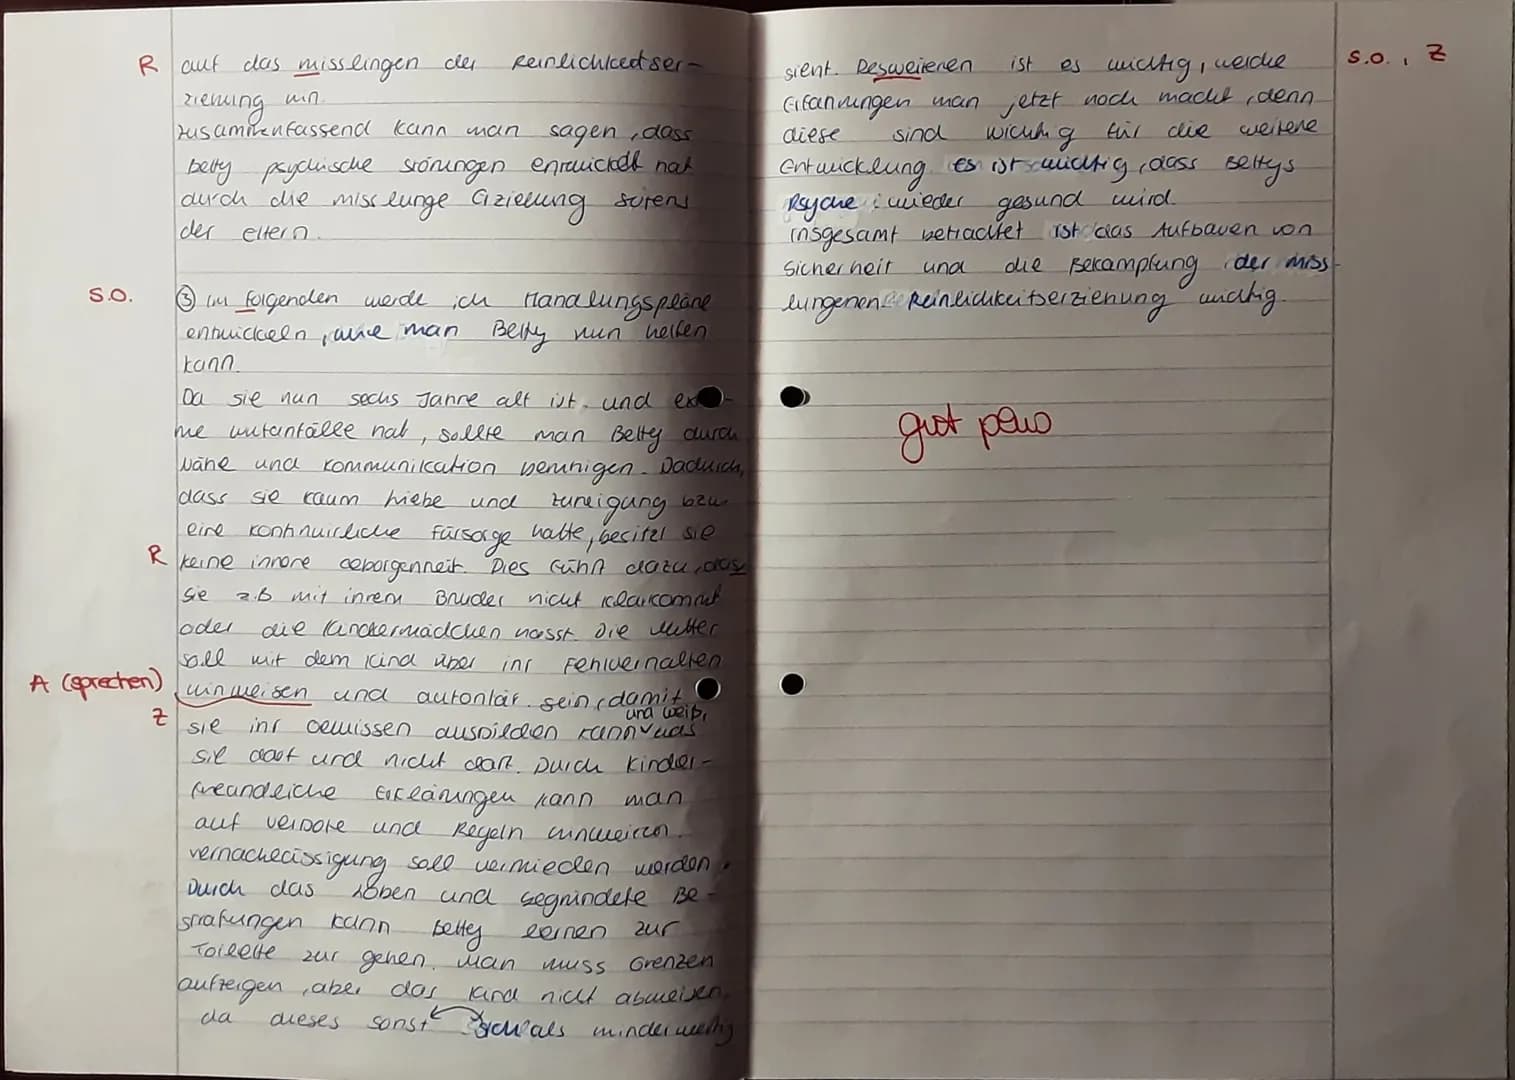 R auf das misslingen der Reinlichkeitser-
ziehung hin.
Zusammenfassend kann man sagen, dass
Betty psychische Störungen entwickelt hat
durch die misslunge Erziehung seitens
der Eltern.
S.O. ③ Im folgenden werde ich Handlungspläne
entwickeln, wie man Betty nun helfen
kann.
Da sie nun sechs Jahre alt ist und
me Wutanfälle hat, sollte man Betty durch
Nähe und Kommunikation beruhigen. Dadurch,
dass sie kaum Liebe und Zuneigung bzw
eine kontinuirliche Fürsorge hatte, besitzt sie
R keine innere Geborgenheit. Dies führt dazu, das
sie z.B mit ihrem Bruder nicht klarkommt
oder die Kindermädchen hasst. Die Mutter
soll mit dem Kind über ihr Fehlverhalten
A (sprechen) hinweisen und autoritär sein, damit
und weiß,
Z sie ihr Gewissen ausbilden kann was
sie darf und nicht darf. Durch Kinder-
freundliche Erklärungen kann man
auf Verbote und Regeln hinweisen.
Vernachlässigung soll vermieden werden.
Durch das Loben und begründete Be-
strafungen kann Betty lernen zur
Toilette zur gehen. Man muss Grenzen
aufzeigen, aber das Kind nicht abweisen,
da dieses sonst sich als minderwertig
sieht. Desweiteren ist es wichtig, welche S.O., Z
Erfahrungen man jetzt noch macht, denn
diese sind wichtig für die weitere
Entwicklung. Es ist wichtig, dass Bettys
Psyche wieder gesund wird.
Insgesamt betrachtet ist das Aufbauen von
Sicherheit und die Bekämpfung der miss-
lungenen Reinlichkeitserziehung wichtig.
gut plus